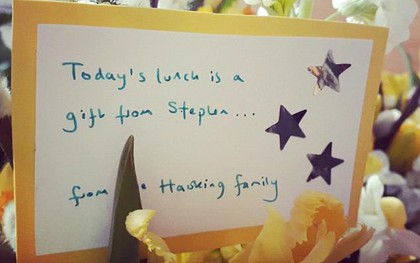 Today's lunch is a
gift from Stephen...
from Hasking family